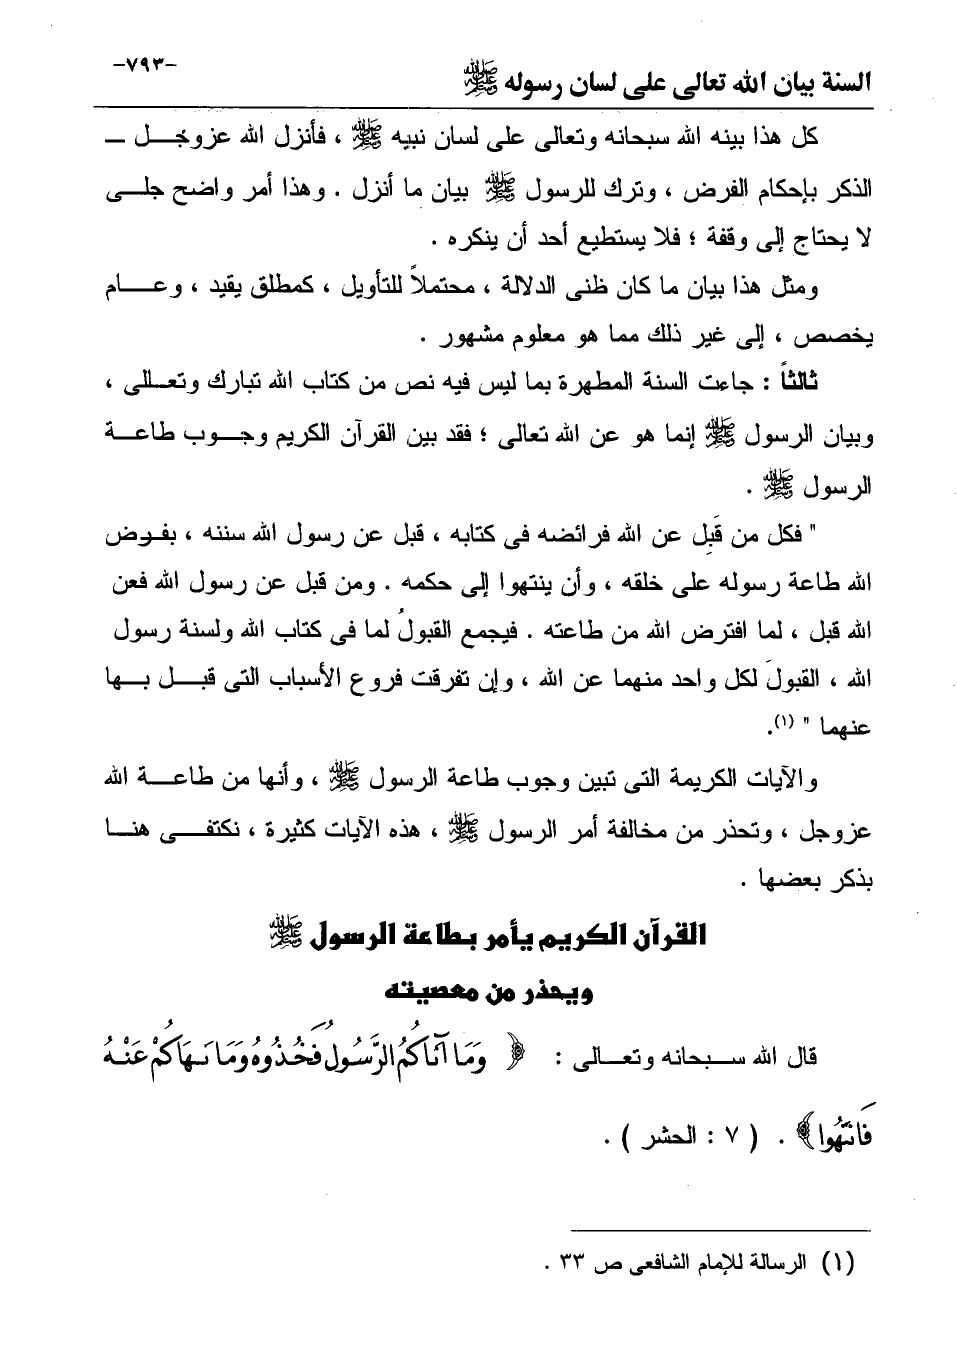 السنة بيان الله تعالى على لسان رسوله ﷺ
-٧٩٣-
كل هذا بينه الله سبحانه وتعالى على لسان نبيه ﷺ ، فأنزل الله عزوجل ـ
الذكر بإحكام الفرض ، وترك للرسول ﷺ بيان ما أنزل . وهذا أمر واضح جلى
لا يحتاج إلى وقفة ؛ فلا يستطيع أحد أن ينكره .
ومثل هذا بيان ما كان ظنى الدلالة ، محتملاً للتأويل ، كمطلق يقيد ، وعام
يخصص ، إلى غير ذلك مما هو معلوم مشهور .
ثالثاً : جاءت السنة المطهرة بما ليس فيه نص من كتاب الله تبارك وتعالى ،
وبيان الرسول ﷺ إنما هو عن الله تعالى ؛ فقد بين القرآن الكريم وجوب طاعة
الرسول ﷺ .
" فكل من قَبِل عن الله فرائضه فى كتابه ، قبل عن رسول الله سننه ، بفرض
الله طاعة رسوله على خلقه ، وأن ينتهوا إلى حكمه . ومن قبل عن رسول الله فعن
الله قبل ، لما افترض الله من طاعته . فيجمع القبولُ لما فى كتاب الله ولسنة رسول
الله ، القبولَ لكل واحد منهما عن الله ، وإن تفرقت فروع الأسباب التى قبل بها
عنهما " (١).
والآيات الكريمة التى تبين وجوب طاعة الرسول ﷺ ، وأنها من طاعة الله
عزوجل ، وتحذر من مخالفة أمر الرسول ﷺ ، هذه الآيات كثيرة ، نكتفى هنا
بذكر بعضها .
القرآن الكريم يأمر بطاعة الرسول ﷺ
ويحذر من معصيته
قال الله سبحانه وتعالى : ﴿ وَمَا آتَاكُمُ الرَّسُولُ فَخُذُوهُ وَمَا نَهَاكُمْ عَنْهُ
فَانتَهُوا﴾ . ( ٧ : الحشر ) .
(١) الرسالة للإمام الشافعى ص ٣٣ .